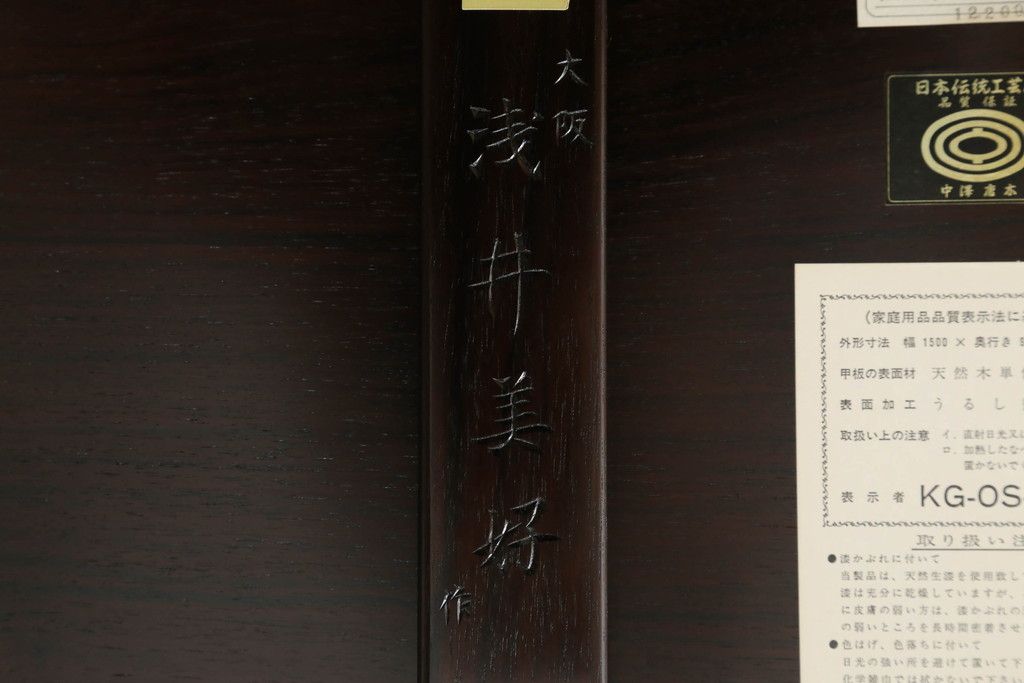 大阪
浅井美好
作
12200
日本伝統工芸
品質保証
中澤唐木
(家庭用品品質表示法に
外形寸法 幅 1500 × 奥行き 9
甲板の表面材 天然木単
表面加工 うるし
取扱い上の注意 イ. 直射日光又
ロ. 加熱したな
置かないで
表示者 KG-OS
取り扱い注
●漆かぶれに付いて
当製品は、天然生漆を使用致し
漆は充分に乾燥していますが、
に皮膚の弱い方は、漆かぶれの
の弱いところを長時間密着させ
●色はげ、色落ちに付いて
日光の強い所を避けて置いて下
化学雑巾では拭かないで下さい